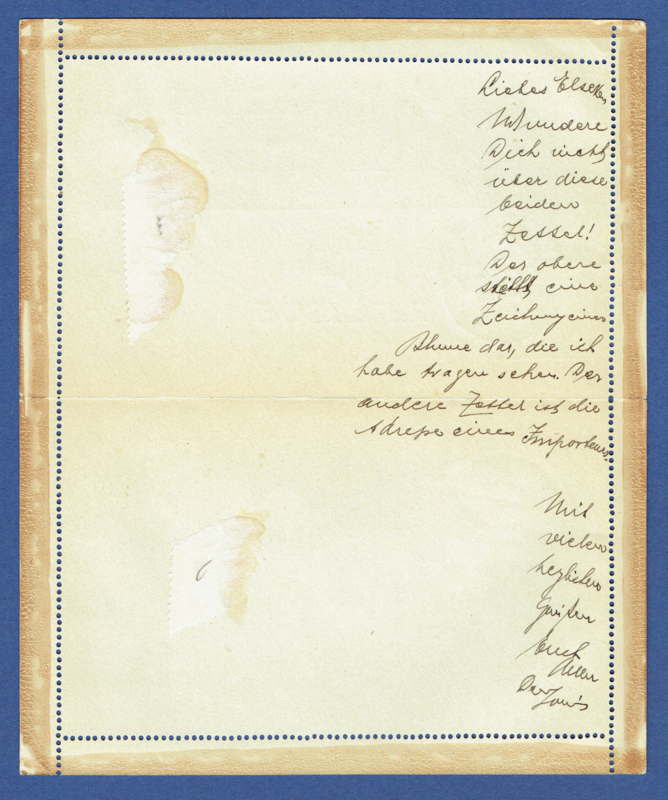 Liebes Elschen,
Wundere
Dich nicht
über diese
beiden
Zettel!
Der obere
stellt eine
Zeichnung einer
Blume dar, die ich
habe tragen sehen. Der
andere Zettel ist die
Adresse eines Importeurs.
Mit
vielen
herzlichen
Grüßen
Euch
Allen
Dein